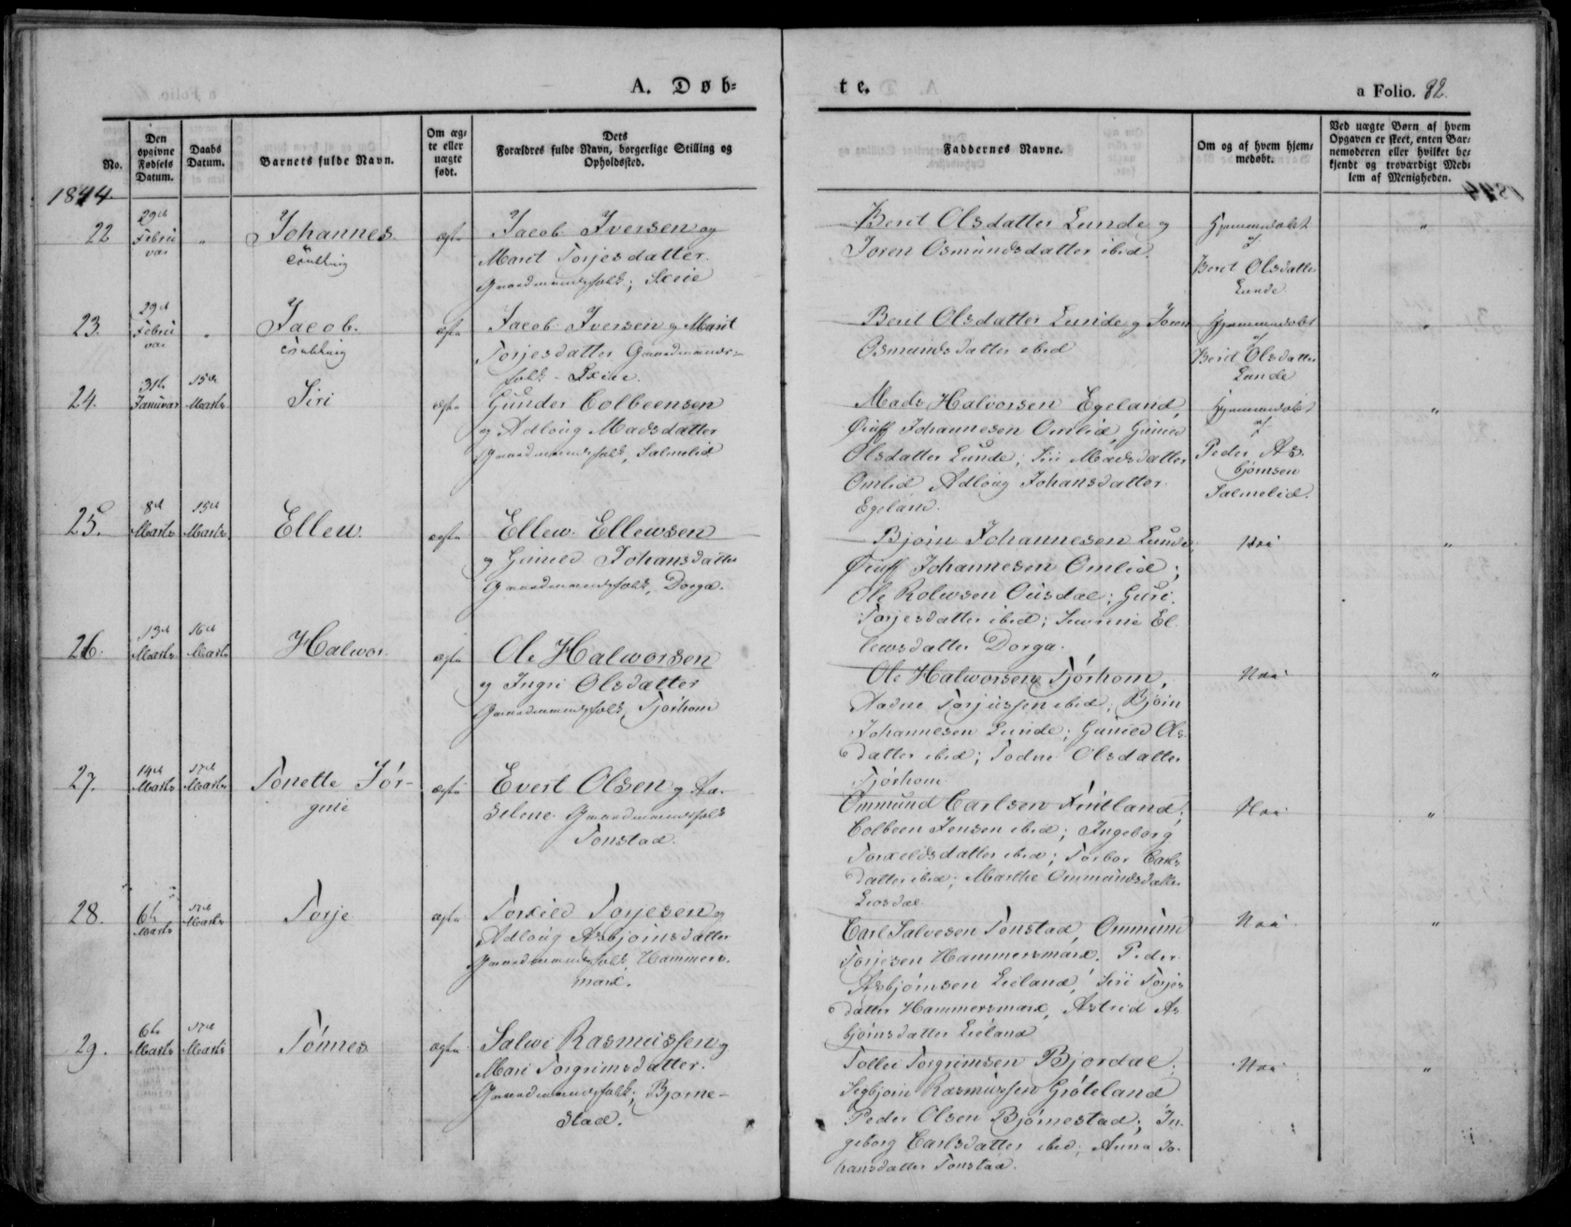 A. Døb=
te.
a Folio. 82.
No.
Den opgivne Fødsels Datum.
Daabs Datum.
Barnets fulde Navn.
Om ægte eller uægte født.
Dets Forældres fulde Navn, borgerlige Stilling og Opholdssted.
Faddernes Navne.
Om og af hvem hjemmedøbt.
Ved uægte Børn af hvem Opgaven er skeet, enten Barnemoderen eller hvilket bekjendt og troværdigt Medlem af Menigheden.
1844
22
29de
Februvar
"
Johannes
Tvilling
ægte
Jacob Iversen og
Marit Torjesdatter
Gaardmandsfolk; Skeie
Berit Olsdatter Lunde og
Joren Osmundsdatter ibid.
Hjemmedøbt
af
Berit Olsdatter
Lunde
"
23.
29de
Februvar
"
Jacob.
Tvilling
ægte
Jacob Iversen og Marit
Torjesdatter Gaardmands-
folk - Skeie.
Berit Olsdatter Lunde og Joren
Osmundsdatter ibid
Hjemmedøbt
af
Berit Olsdatter
Lunde
"
24.
31te
Januvar
15de
Marts
Siri
ægte
Gunder Colbeensen
og Adloug Madsdatter
Gaardmandsfolk, Salmelid
Mads Halvorsen Egeland,
Johannesen Omlid, Guned
Olsdatter Lunde, Siri Madsdatter
Omlid Adloug Johansdatter
Egeland.
Hjemmedøbt
af
Peder As-
bjørnsen
Salmelid.
"
25.
8de
Marts
15de
Marts
Ellew.
ægte
Ellew Ellewsen
og Guned Johansdatter
Gaardmandsfolk, Dorga.
Bjørn Johannesen Lunde
Johannesen Omlid;
Ole Rolewsen Ousdal; Guri
Torjesdatter ibid; El-
lewsdatter Dorga.
Nei
"
26.
13de
Marts
16de
Marts
Halwor.
ægte
Ole Halworsen
og Ingri Olsdatter
Gaardmandsfolk, Tjørhom
Ole Halworsen Tjørhom,
Aadne Torjussen ibid; Bjørn
Johannesen Lunde; Guned Ols-
datter ibid; Todne Olsdatter
Tjørhom
Nei
"
27.
14de
Marts
17de
Marts
Tonette Jør-
gine
ægte
Evert Olsen og Aa-
selene Gaardmandsfolk
Tonstad.
Ommund Carlsen Fintland;
Colbeen Jensen ibid; Ingeborg
Torkeldsdatter ibid; Torbor Carls-
datter ibid; Marthe Ommundsdatter
Liosdal
Nei
"
28.
6te
Marts
17de
Marts
Torje
ægte
Torkild Torjesen og
Adloug Asbjørnsdatter
Gaardmandsfolk, Hammers-
mark.
Carl Salvesen Tonstad, Ommund
Torjesen Hammersmark. Peder
Asbjørnsen Lieland, Siri Torjes-
datter Hammersmark, Astrid As-
bjørnsdatter Lieland
Nei
"
29.
6te
Marts
17de
Marts
Tønnes
ægte
Salve Rasmussen og
Mari Torgrimsdatter.
Gaardmandsfolk; Bjørne-
stad.
Tollev Torgrimsen Bjordal;
Segbjørn Rasmussen Grøteland
Peder Olsen Bjørnestad; In-
geborg Carlsdatter ibid; Anna Jo-
hansdatter Tonstad.
Nei
"